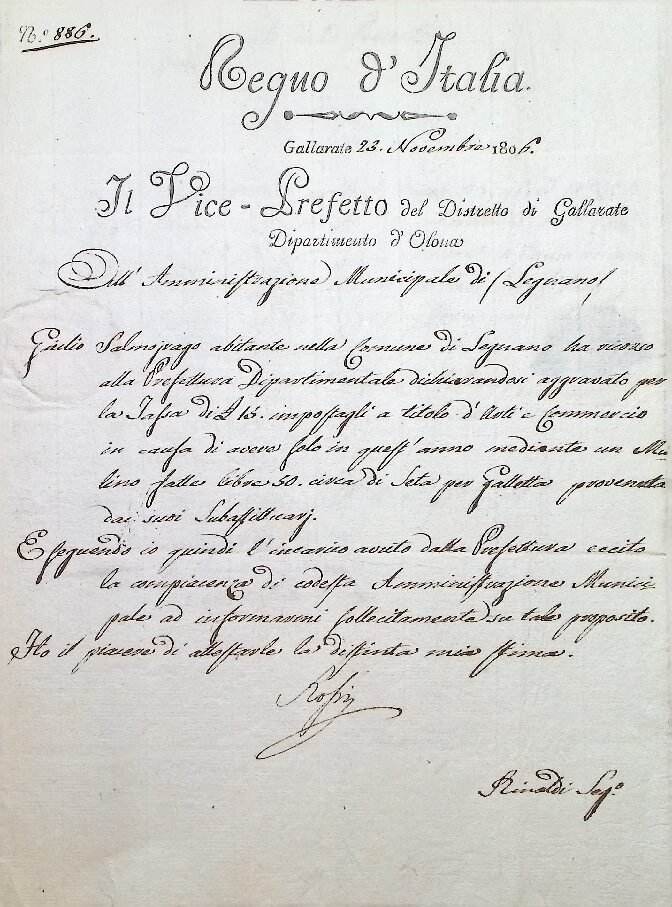 N.º 886.
Regno d'Italia.
Gallarate 23. Novembre 1806.
Il Vice-Prefetto del Distretto di Gallarate
Dipartimento d'Olona
All' Amministrazione Municipale di Legnano
Giulio Salmojrago abitante nella Comune di Legnano ha ricorso
alla Prefettura Dipartimentale dichiarandosi aggravato per
la Tassa di £ 15. impostagli a titolo d'Arti e Commercio
in causa di avere solo in quest' anno mediante un Mu-
lino fatte libre 50. circa di Seta per Galletta provenuta
dai suoi Subaffittuarj.
Eseguendo io quindi l'incarico avuto dalla Prefettura eccito
la compiacenza di codesta Amministrazione Munici-
pale ad informarmi sollecitamente su tale proposito.
Ho il piacere di attestarle la distinta mia stima.
Rinaldi Seg.º